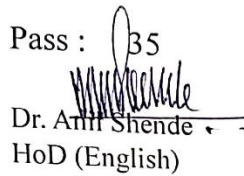 Pass : 35
Dr. Anil Shende
HoD (English)